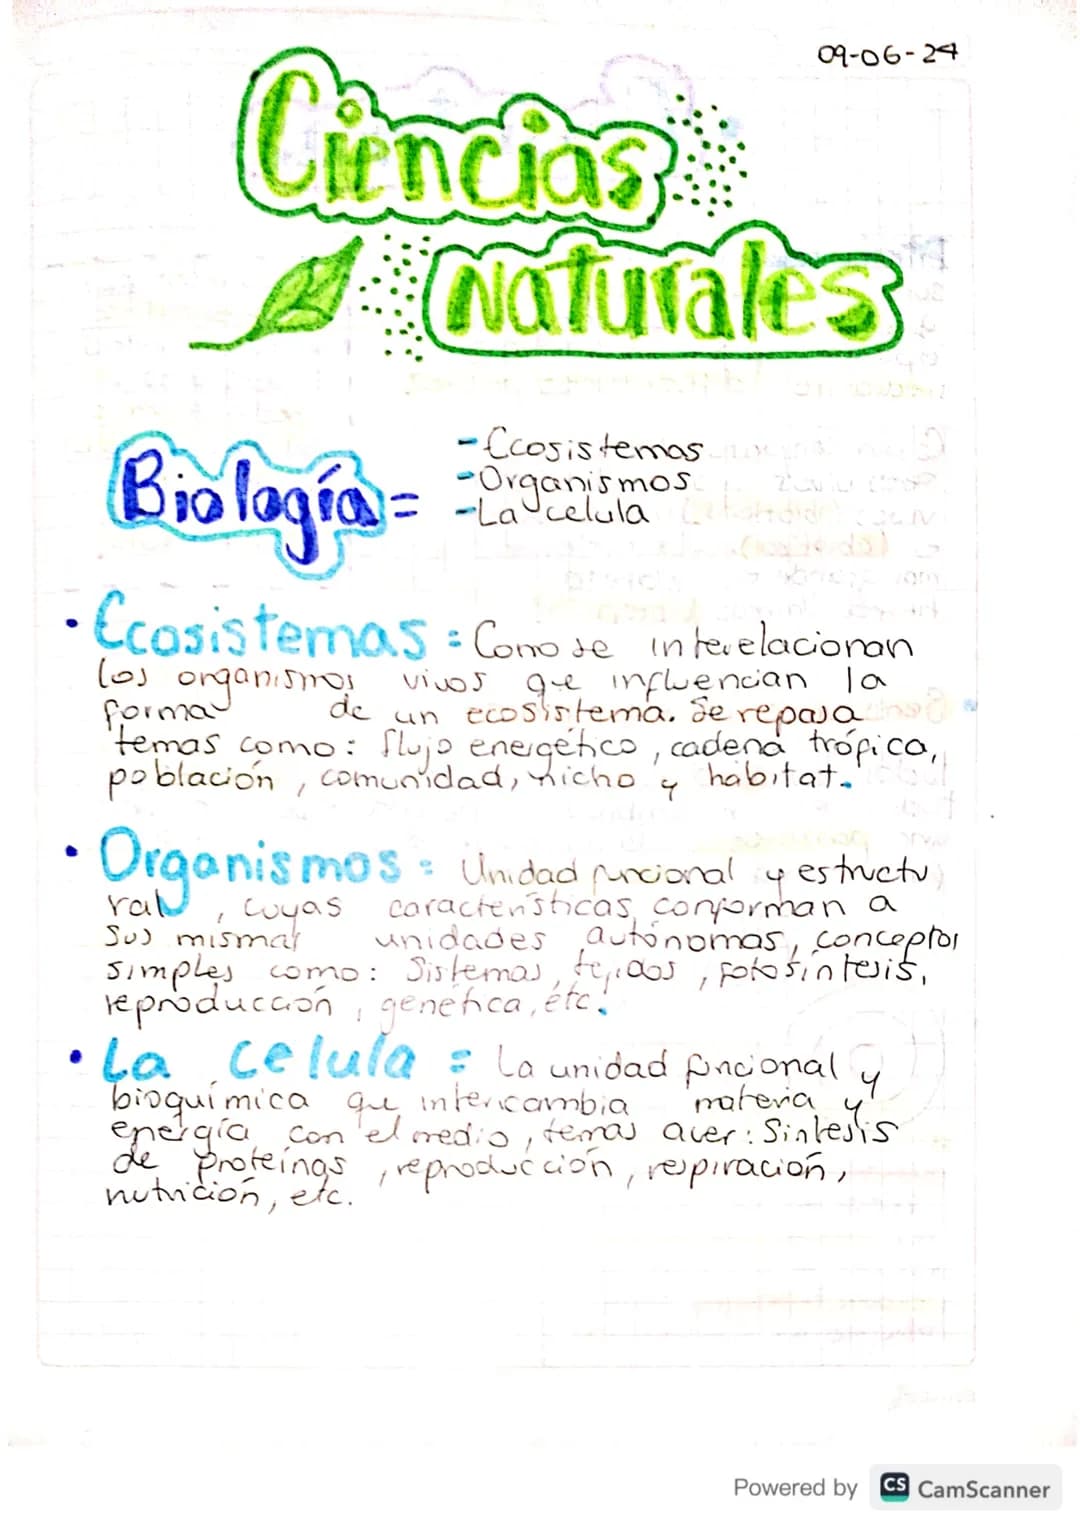 09-06-24
Ciencias
Naturales
Biología =
- Ecosistemas
- Organismos
- La celula
• Ecosistemas = Como se interelacionan
los organismos vivos que influencian la
forma de un ecosistema. Se repasa
temas como: flujo energético, cadena trópica,
población, comunidad, nicho y habitat.
• Organismos = Unidad funcional y estructu
ral, cuyas características conforman a
sus mismas unidades autónomas, conceptos
simples como: Sistemas, tejidos, fotosíntesis,
reproducción, genética, etc.
• La celula = La unidad funcional y
bioquímica que intercambia materia y
energía con el medio, temas a ver: Sintesis
de proteínas, reproducción, respiración,
nutrición, etc.
Powered by CS CamScanner